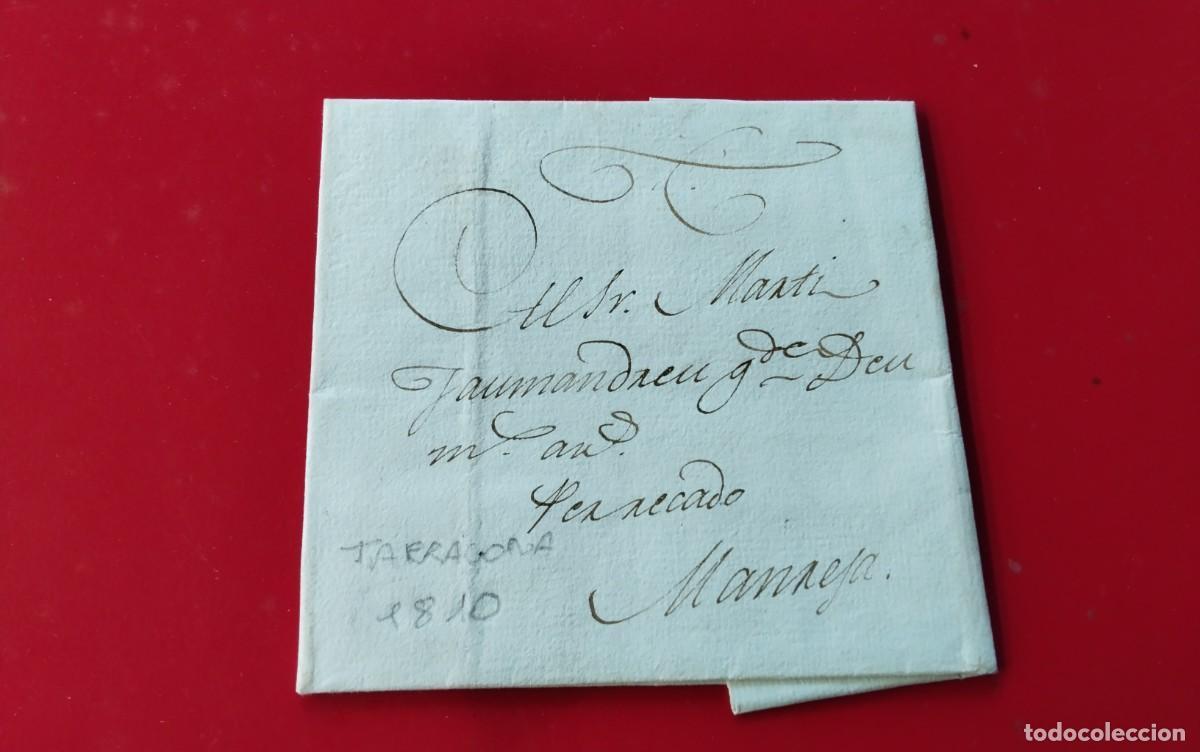 Al Sr. Marti
Jaumandreu gde Deu
ms. as.
Per recado
Manresa.
TARRAGONA
1810
todocoleccion